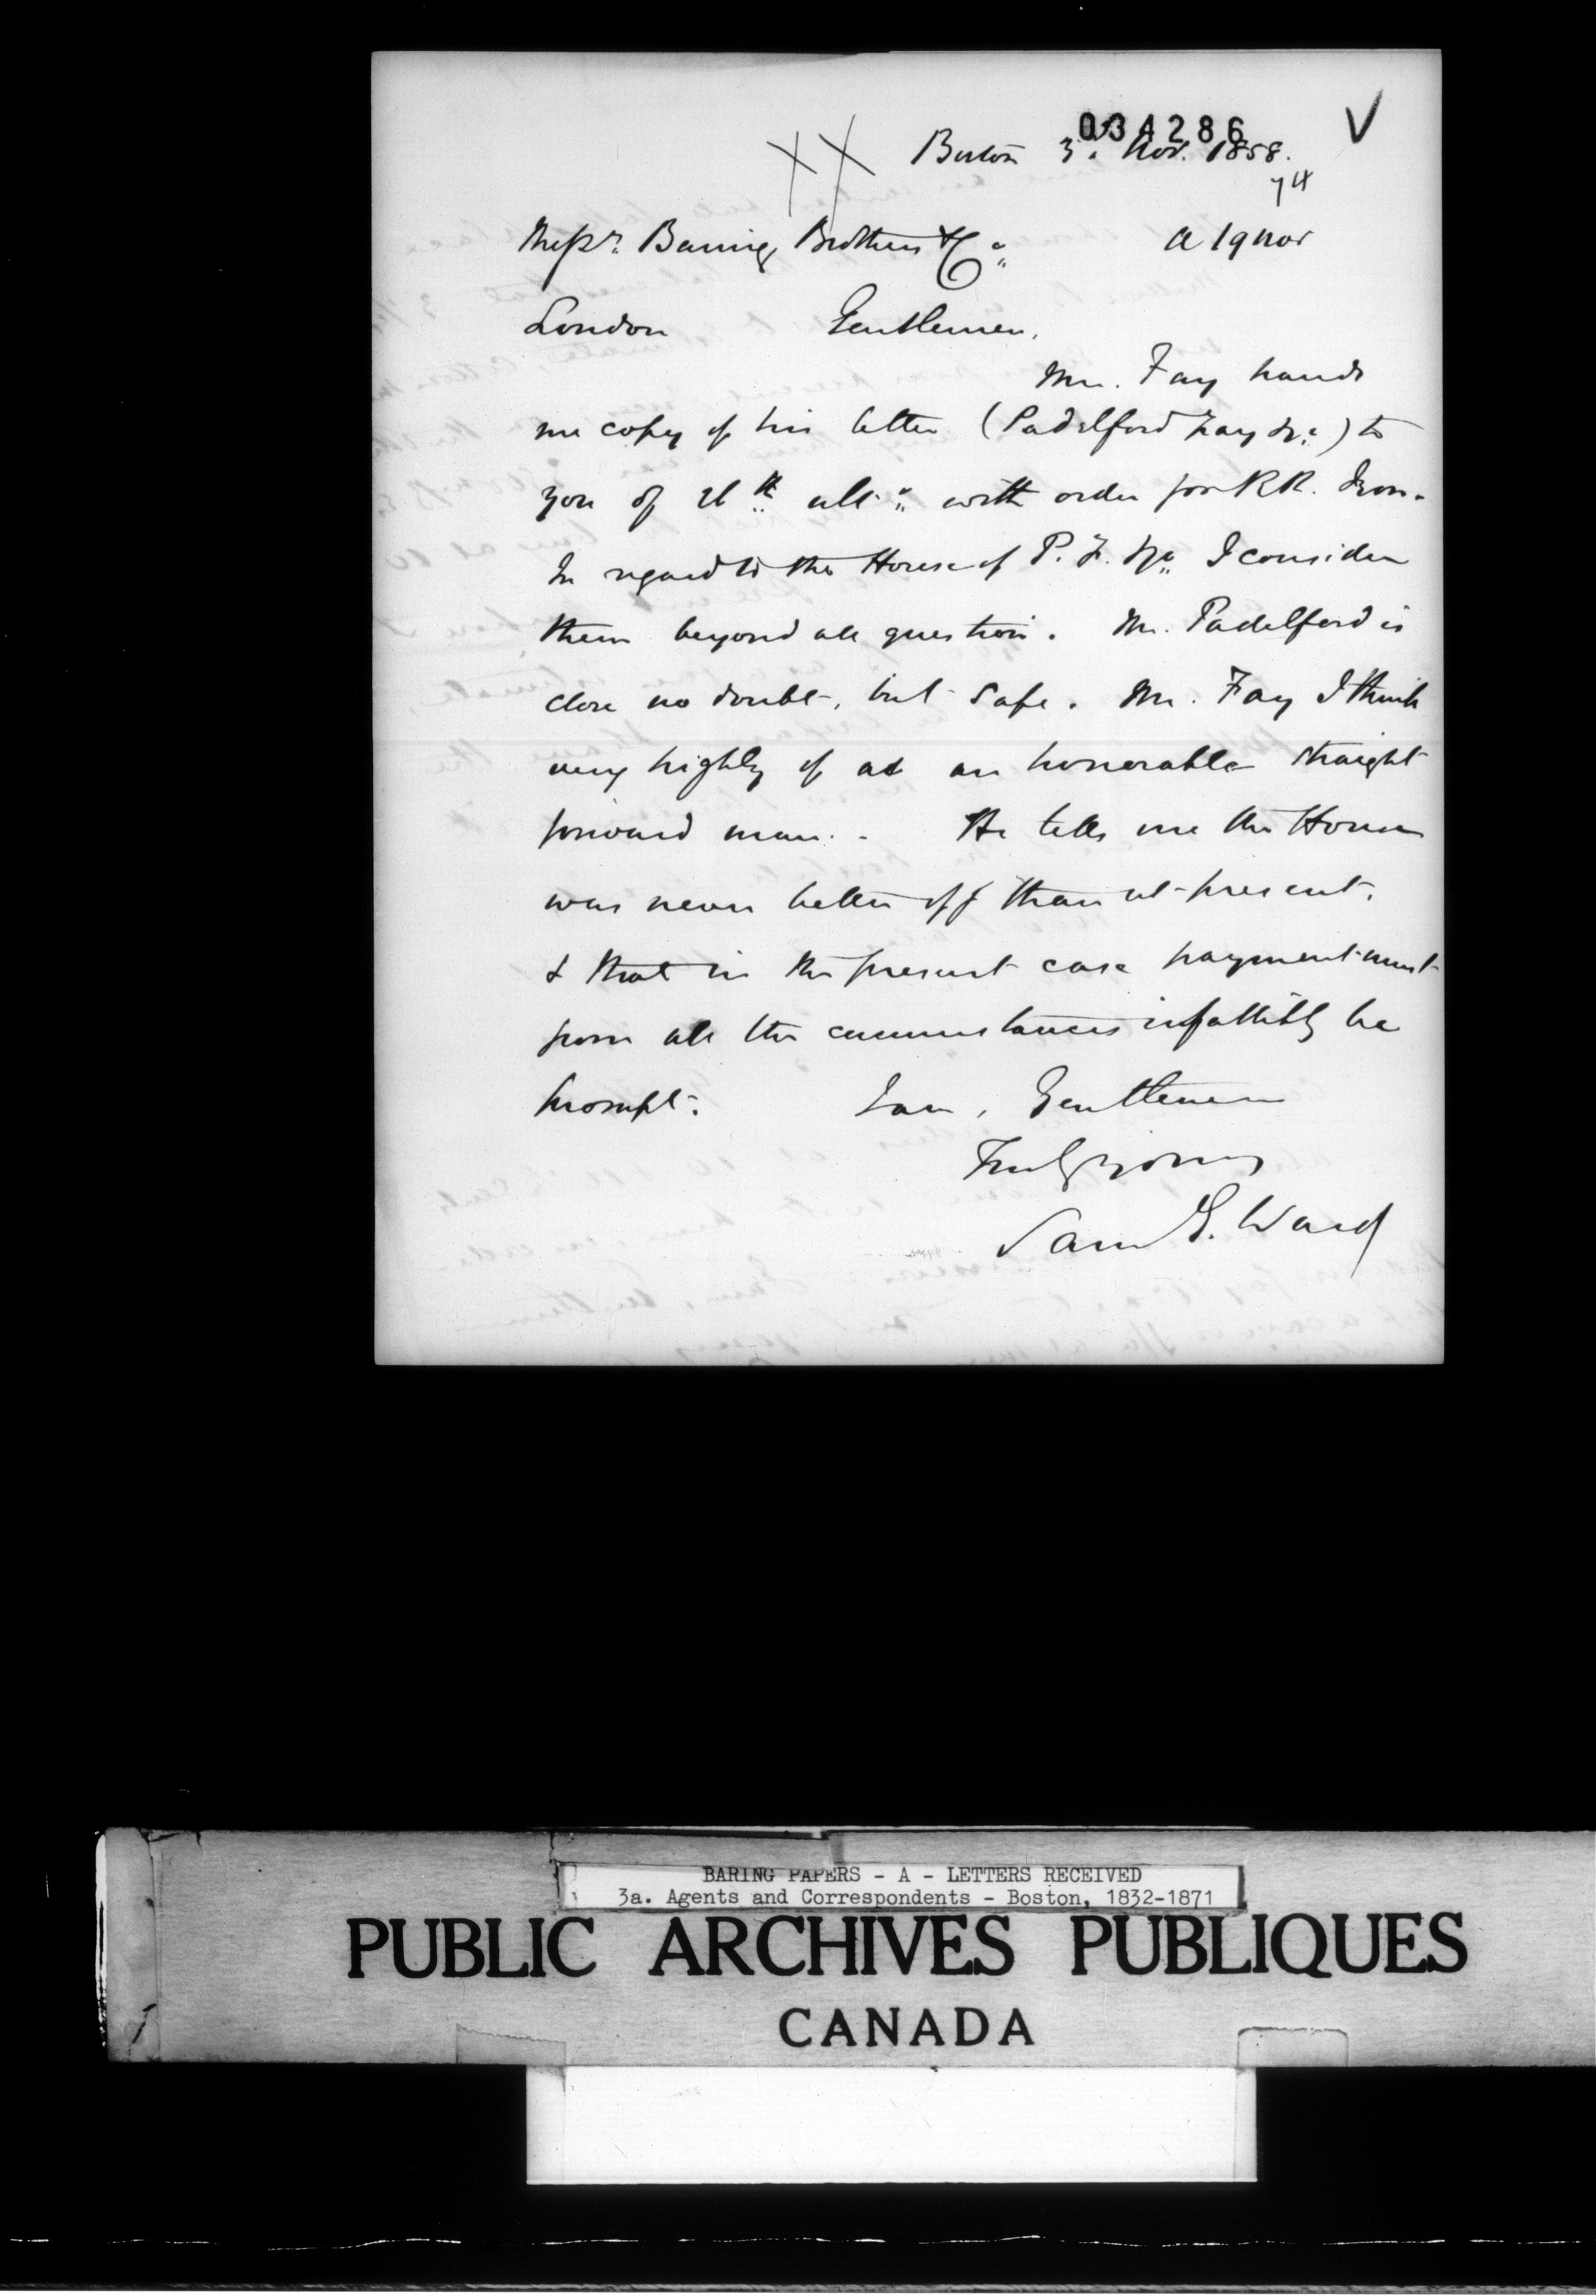 034286
V
XX Boston 3d. Nov. 1858.
74
Messrs. Baring Brothers & Co.
a 19 nov
London Gentlemen,
Mr. Fay hands
me copy of his letter (Padelford Fay & Co.) to
you of 26th ulto. with order for R R. Iron.
In regard to the House of P. F. & Co. I consider
them beyond all question. Mr. Padelford is
close no doubt, but safe. Mr. Fay I think
very highly of as an honorable straight
forward man. - He tells me the House
was never better off than at present,
& that in the present case payment must
from all the circumstances infallibly be
prompt. I am, Gentlemen
Truly yours
Sam G. Ward
BARING PAPERS - A - LETTERS RECEIVED
3a. Agents and Correspondents - Boston, 1832-1871
PUBLIC ARCHIVES PUBLIQUES
CANADA